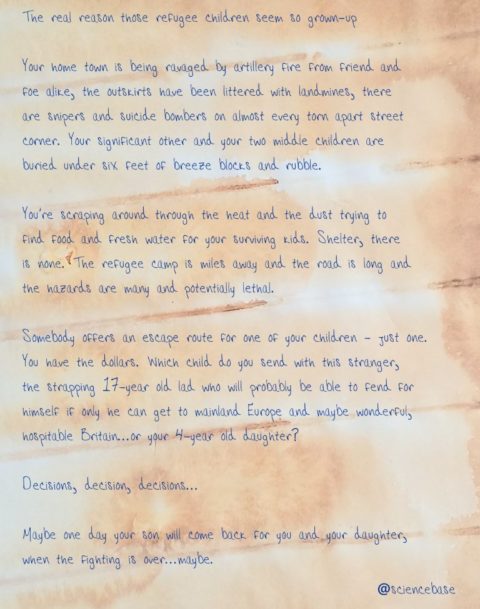 The real reason those refugee children seem so grown-up
Your home town is being ravaged by artillery fire from friend and
foe alike, the outskirts have been littered with landmines, there
are snipers and suicide bombers on almost every torn apart street
corner. Your significant other and your two middle children are
buried under six feet of breeze blocks and rubble.
You're scraping around through the heat and the dust trying to
find food and fresh water for your surviving kids. Shelter, there
is none. The refugee camp is miles away and the road is long and
the hazards are many and potentially lethal.
Somebody offers an escape route for one of your children - just one.
You have the dollars. Which child do you send with this stranger,
the strapping 17-year old lad who will probably be able to fend for
himself if only he can get to mainland Europe and maybe wonderful,
hospitable Britain...or your 4-year old daughter?
Decisions, decision, decisions...
Maybe one day your son will come back for you and your daughter,
when the fighting is over...maybe.
@sciencebase